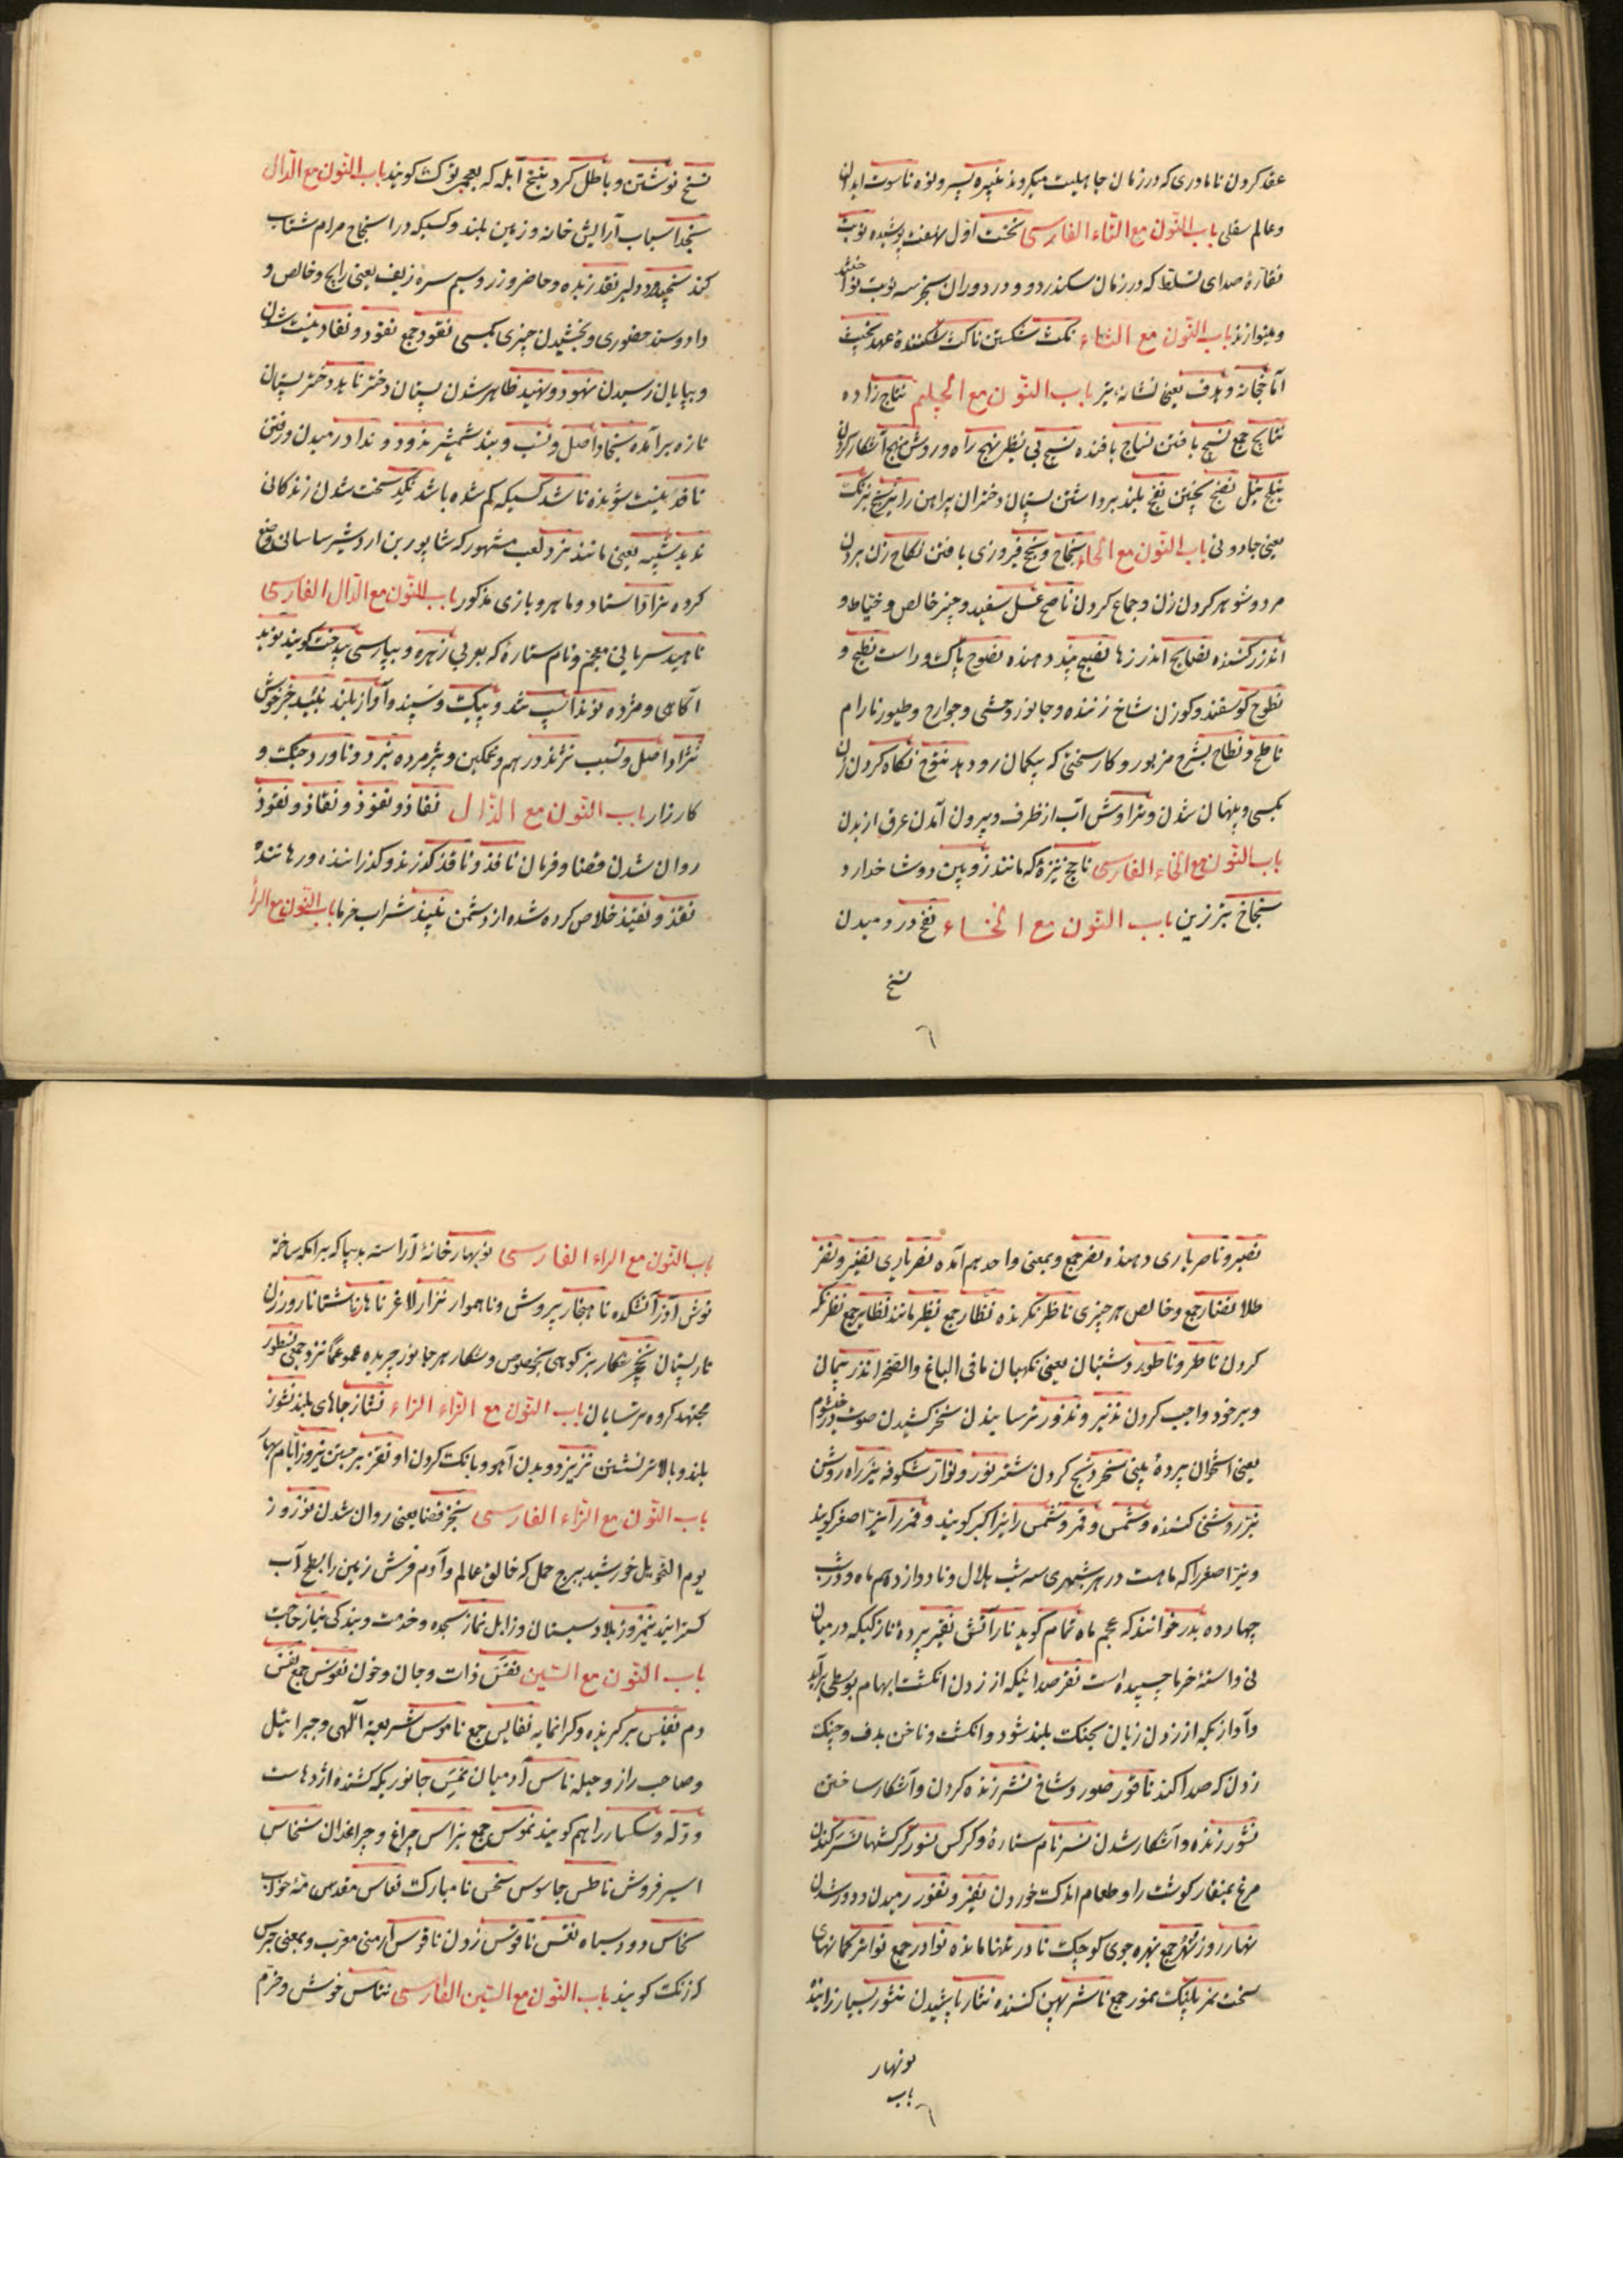 عقد کردن نامادری که در زمان جاهلیت میکردند نبیره پسر و نوه ناسوت ابدان
و عالم سفلی باب النون مع التاء الفارسی نخت اول نهفت پوشیده نوبت
نقاره صدای تسلط که در زمان سکندر دو و در دوران سنجر سه نوبت نواختند
و مینوازند باب النون مع الثاء نکث شکستن ناکث شکننده عهد
باب النون مع الجیم نتاج زاده
نتایج جمع نسج بافتن نساج بافنده نسیج بی نظیر نهج راه و روش منهج آشکار کردن
نضج پختن نفج بلند برداشتن پستان دختران پیراهن را نیرنج نیرنک
یعنی جادوئی باب النون مع الحاء نجاح و نجح فیروزی یافتن نکاح زن بردن
مرد و شوهر کردن زن و جماع کردن ناصح عسل سفید و چیز خالص و خیاط و
اندرز کننده نصایح اندرزها نصیح پند دهنده نصوح پاک و راست نطیح و
نطوح کوسفند و کوزن شاخ زننده و جانور وحشی و جوارح و طیور نارام
ناطح و نطاح بشرح مزبور و کار سختی که بیکمان رو دهد نتوح نکاه کردن زن
بکسی و پنهان شدن و تراوش آب از ظرف و بیرون آمدن عرق از بدن
باب النون مع الخاء الفارسی ناچخ نیزه که مانند زوبین دو شاخ دارد
نجاخ تبرزین باب النون مع الخاء نفخ در دمیدن
نسخ
نسخ نوشتن و باطل کرد نبخ آبله که بعجم نوکث کویند باب النون مع الدال
نجد اسباب آرایش خانه و زمین بلند و کسیکه در استنجاح مرام شتاب
کند نجید و دلیر نقد زبده و حاضر و زر و سیم سره زیف یعنی رایج و خالص و
داد و ستد حضوری و بخشیدن چیزی بکسی نقود جمع نفود و نفاد نیست شدن
و بپایان رسیدن نهود و نهید ظاهر شدن پستان دختر ناهد دختر پستان
تازه برآمده نجاد اصل و نسب و بند شمشیر ندود و نداد رمیدن و رفتن
نافد نیست شونده ناشد کسیکه کم شده باشد نکد سخت شدن زندکانی
ندید شبیه یعنی مانند نرد لعب مشهور که شاپور بن اردشیر ساسانی وضع
کرده نراد استاد و ماهر و بازی مذکور باب النون مع الدال الفارسی
ناهید سریانی معجم و نام ستاره که بعربی زهره و بپارسی بیدخت کویند نوید
آکاهی و مژده نوند اسب تند و پیک و سپند و آواز بلند نبئید خبر خوش
نژاد اصل و نسب نژند درهم و غمکین و پژمرده نبرد و ناورد جنک و
کارزار باب النون مع الذال نفاذ و نفوذ و نقاذ و نقوذ
روان شدن قضا و فرمان نافذ و ناقذ کذرنده و کذراننده و رهاننده
نقذ و نقیذ خلاص کرده شده از دشمن نبیذ شراب خرما باب النون مع الراء
نصیر و ناصر یاری دهنده نصر جمع و بمعنی واحد هم آمده نصر یاری نضیر و نضر
طلا نضار جمع و خالص هر چیزی ناظر نکرنده نظار جمع نظیر مانند نظایر جمع نظر نکه
کردن ناطر و ناطور دشتبان یعنی نکهبان ما فی الباغ و الصحرا نذر پیمان
و بر خود واجب کردن نذیر و نذور ترسانیدن نخر کشیدن صوت در خیشوم
یعنی استخوان پرده بینی نحر ذبح کردن شتر نور و نوار شکوفه نیر راه روشن
نیر روشنی کننده و شمس و قمر و شمس را نیر اکبر کویند و قمر را نیر اصغر کویند
و نیر اصغر را که ماهست در هر شهری سه شب هلال و تا دوازدهم ماه و در شب
چهارده بدر خوانند که بعجم ماه تمام کوید نار آتش نقیر پرده نازکیکه در میان
نی و استه خرما چسپیده است نقر صدائیکه از زدن انکشت ابهام بوسطی برآید
و آوازیکه از زدن زبان بحنک بلند شود و انکشت و ناخن بدف و چنک
زدن که صدا کند ناقور صور و شاخ نشر زنده کردن و آشکار ساختن
نشور زنده و آشکار شدن نسر نام ستاره و کرکس نسور کرکسها نسر کندن
مرغ بمنقار کوشت را و طعام اندک خوردن نفیر و نفور رمیدن و دور شدن
نهار روز نهر جمع نهره جوی کوچک نادر تنها مانده نوادر جمع نواتر کمانهای
سخت نمر پلنک نمور جمع ناشر پهن کننده نثار پاشیدن نثور بسیار زاینده
نوبهار
باب
باب النون مع الراء الفارسی نوبهار خانه آراسته بدیبا که برامکه ساخته
نوش آذر آتشکده ناهنجار بیروش و ناهموار نزار لاغر ناهار ناشتا نارو رزن
نار پستان نخچیر شکار بز کوهی بخصوص و شکار هر جانور چرنده عموماً
مجتهد کروه ترسایان باب النون مع الزاء الزاء نشاز جاهای بلند نشوز
بلند و بالاتر نشستن نزیز دویدن آهو و بانک کردن او نقز برجستن نیروز ایام بهار
باب النون مع الزاء الفارسی نجز قضا یعنی روان شدن نوروز
یوم التحویل خورشید ببرج حمل که خالق عالم و آدم فرش زمین را بسطح آب
کسترانید نیمروز بلاد سیستان و زابل نماز سجده و خدمت و بندکی نیاز حاجت
باب النون مع السین نفس ذات و جان و خون نفوس جمع نفس
دم نفیس برکزیده و کرانمایه نفایس جمع ناموس شریعة الهی و جبرائیل
و صاحب راز و حیله ناس آدمیان نمس جانوریکه کشنده اژدهاست
و دله و سکسار را هم کویند نموس جمع نبراس چراغ و چراغدان نخاس
اسیر فروش ناطس جاسوس نحس نامبارک نعاس مقدس مته خواب
نحاس دود سیاه نقس ناقوس زدن ناقوس ارمنی معرب و بمعنی جرس
که زنک کویند باب النون مع السین الفارسی نناس خوش و خرم